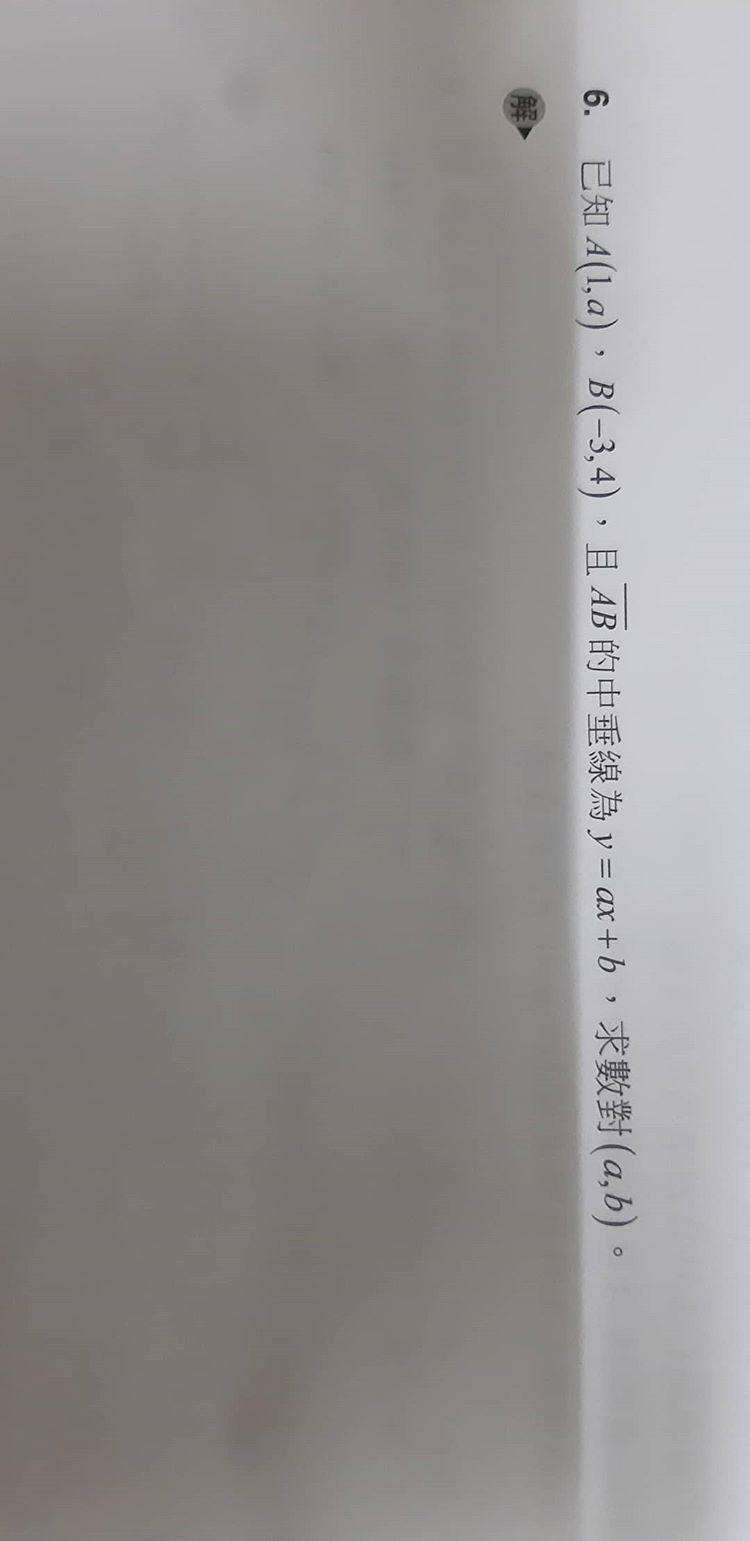 6. 已知 A(1,a),B(−3,4),且 \overline{AB} 的中垂線為 y=ax+b,求數對(a,b)。
解